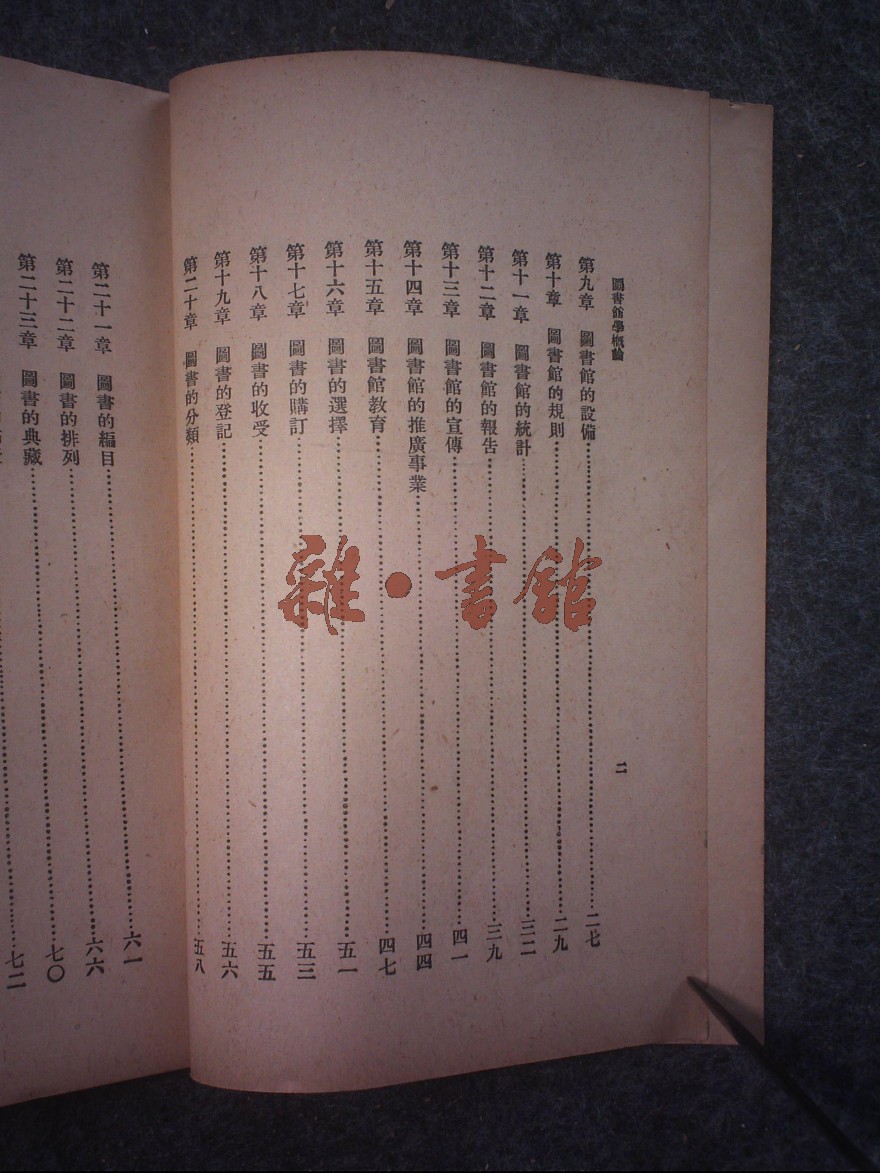 圖書館學概論
二
第九章 圖書館的設備……二七
第十章 圖書館的規則……二九
第十一章 圖書館的統計……三二
第十二章 圖書館的報告……三九
第十三章 圖書館的宣傳……四一
第十四章 圖書館的推廣事業……四四
第十五章 圖書館教育……四七
第十六章 圖書的選擇……五一
第十七章 圖書的購訂……五三
第十八章 圖書的收受……五五
第十九章 圖書的登記……五六
第二十章 圖書的分類……五八
第二十一章 圖書的編目……六一
第二十二章 圖書的排列……六六
第二十三章 圖書的典藏……七〇
七二
雜·書館